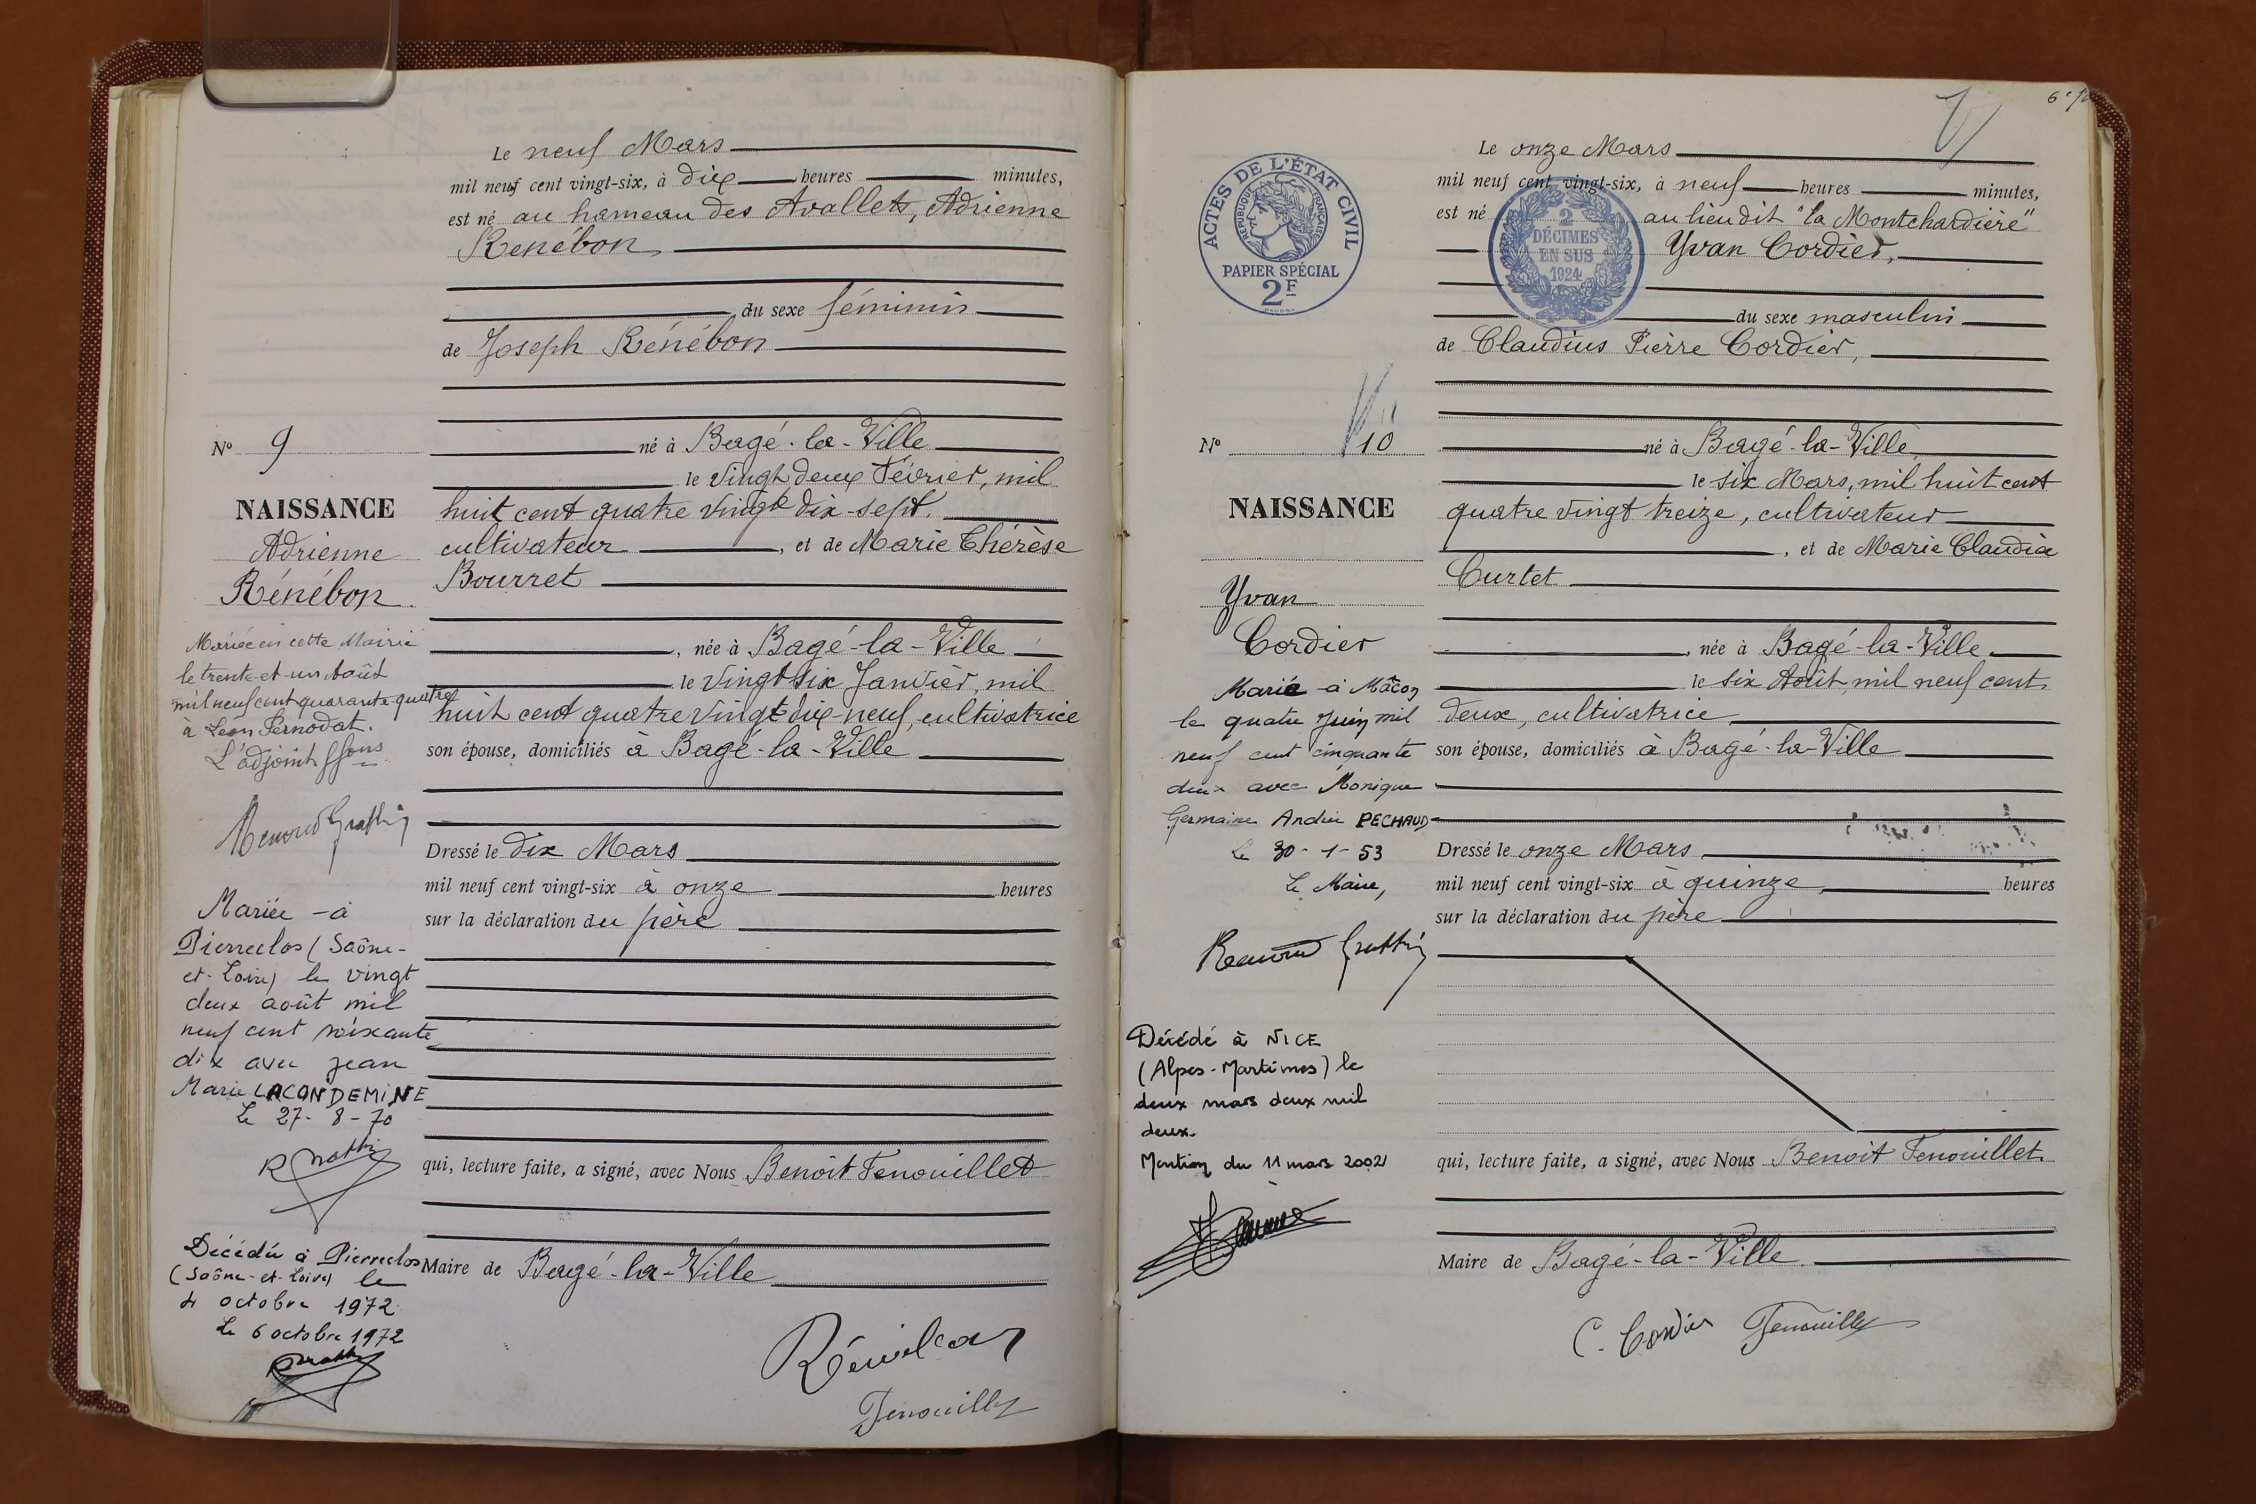 Le neuf Mars
mil neuf cent vingt-six, à dix heures minutes,
est né au hameau des Avallets, Adrienne
Renébon
du sexe féminin
de Joseph Rénébon
né à Bagé-la-Ville
le vingt deux Février, mil
huit cent quatre vingt dix-sept.
cultivateur , et de Marie Thérèse
Bourret
, née à Bagé-la-Ville
le vingt six Janvier, mil
huit cent quatre vingt dix-neuf, cultivatrice
son épouse, domiciliés à Bagé-la-Ville
Dressé le dix Mars
mil neuf cent vingt-six à onze heures
sur la déclaration du père
qui, lecture faite, a signé, avec Nous Benoit Fenouillet
Maire de Bagé-la-Ville
Fenouillet
No 9
NAISSANCE
Adrienne
Rénébon
Mariée en cette Mairie
le trente-et-un août
mil neuf cent quarante-quatre
à Léon Pernodat.
L'adjoint
Mariée - à
Pierreclos (Saône-
et-Loire) le vingt
deux août mil
neuf cent soixante
dix avec Jean
Marie LACONDEMINE
Le 27-8-70
Décédée à Pierreclos
(Saône-et-Loire) le
4 octobre 1972
Le 6 octobre 1972
6e
Le onze Mars
mil neuf cent vingt-six, à neuf heures minutes,
est né au lieu dit "la Montchardière"
Yvan Cordier,
du sexe masculin
de Claudius Pierre Cordier,
né à Bagé-la-Ville,
le six Mars, mil huit cent
quatre vingt treize, cultivateur
, et de Marie Claudia
Curtet
, née à Bagé-la-Ville
le six Août, mil neuf cent
deux, cultivatrice
son épouse, domiciliés à Bagé-la-Ville
Dressé le onze Mars
mil neuf cent vingt-six à quinze heures
sur la déclaration du père
qui, lecture faite, a signé, avec Nous Benoit Fenouillet
Maire de Bagé-la-Ville
C. Cordier Fenouillet
ACTES DE L'ÉTAT CIVIL
RÉPUBLIQUE FRANÇAISE
PAPIER SPÉCIAL
2F
2
DÉCIMES
EN SUS
1924
No 10
NAISSANCE
Yvan
Cordier
Marié à Mâcon
le quatre Juin mil
neuf cent cinquante
deux avec Monique
Germaine Andrée PECHAUD
Le 30-1-53
Le Maire,
Décédé à NICE
(Alpes-Maritimes) le
deux mars deux mil
deux.
Mention du 11 mars 2002